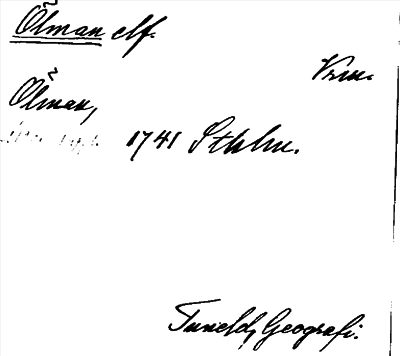 Ölman elf.
Vrm.
Ölman,
1741 Sthlm.
Tuneld, Geografi.